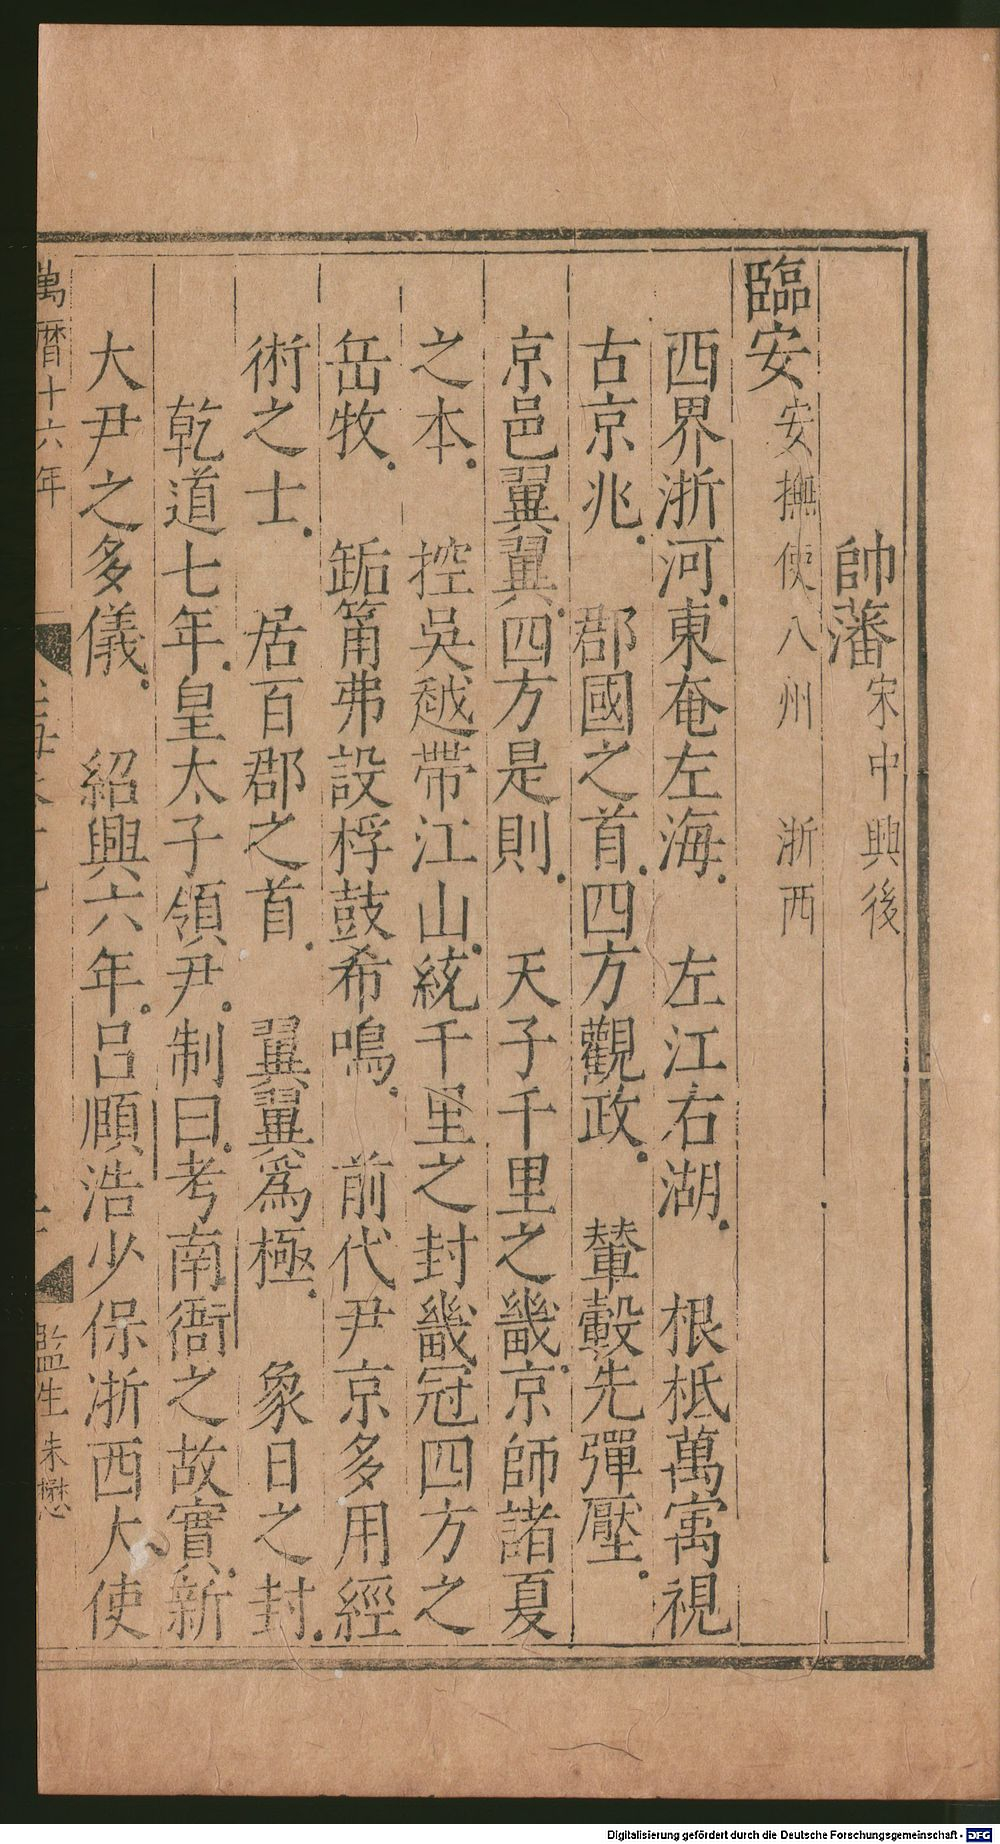 帥藩宋中興後
臨安安撫使八州 浙西
西界浙河東奄左海 左江右湖 根柢萬寓視
古京兆 郡國之首四方觀政 輦轂先彈壓
京邑翼翼四方是則 天子千里之畿京師諸夏
之本 控吳越帶江山統千里之封畿冠四方之
岳牧 缿筩弗設桴鼓希鳴 前代尹京多用經
術之士 居百郡之首 翼翼為極 象日之封
乾道七年皇太子領尹制曰考南衙之故實新
大尹之多儀 紹興六年呂頤浩少保浙西大使
萬曆十六年
監生朱懋
Digitalisierung gefördert durch die Deutsche Forschungsgemeinschaft - DFG